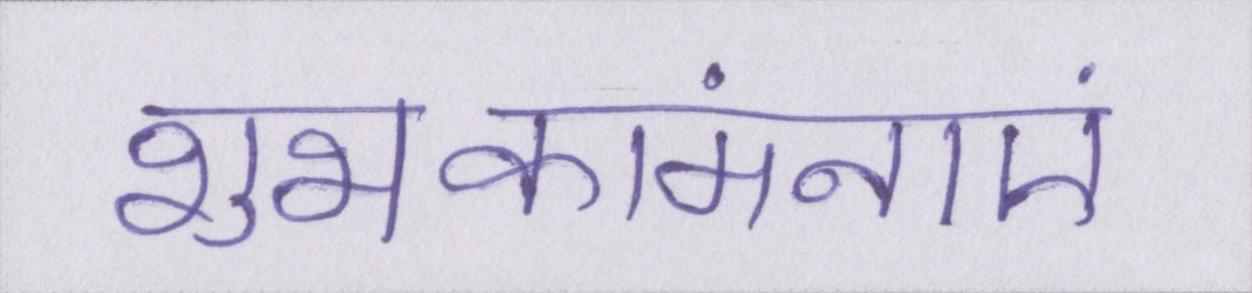 शुभकामंनाएं